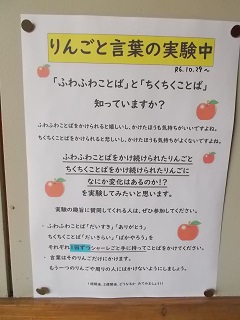 りんごと言葉の実験中
R6.10.29～
「ふわふわことば」と「ちくちくことば」
知っていますか？
ふわふわことばをかけられると嬉しいし、かけたほうも気持ちがいいですよね。
ちくちくことばをかけられると悲しいし、かけたほうも気持ちがよくないですよね。
ふわふわことばをかけ続けられたりんごと
ちくちくことばをかけ続けられたりんごに
なにか変化はあるのか！？
を実験してみたいと思います。
実験の趣旨に賛同してくれる人は、ぜひ参加してください。
・ふわふわことば「だいすき」「ありがとう」
ちくちくことば「だいきらい」「ばかやろう」を
それぞれ1回ずつシャーレごと手に持ってことばをかけてください。
・言葉はそのりんごだけにかけます。
もう一つのりんごや周りの人にはかけないようにしましょう。